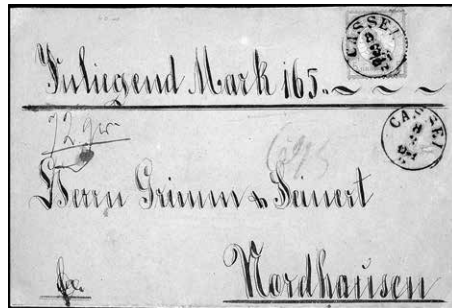 CASSEL
Inliegend Mark 165.
CASSEL
72 gr
Herrn Grimm & Seinert
fr.
Nordhausen